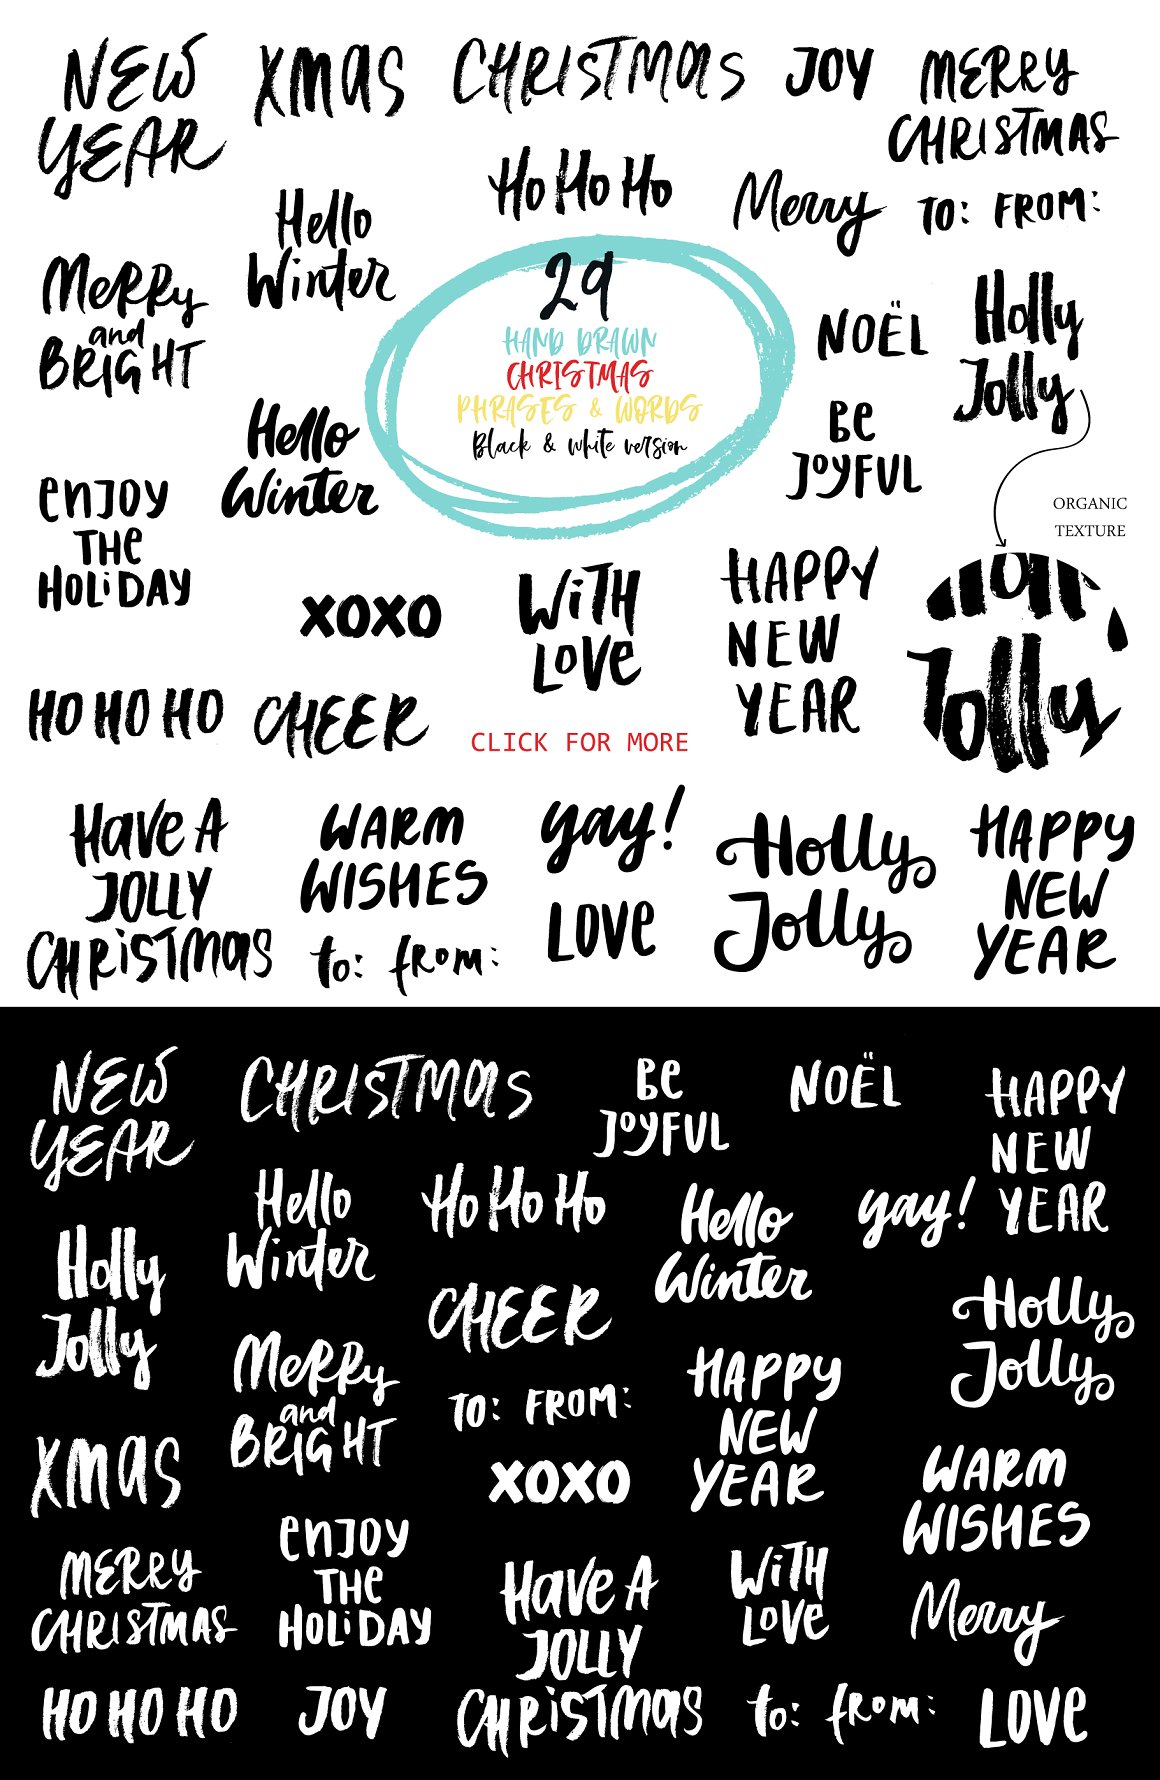 NEW
YEAR
XMAS
CHRISTMAS
JOY
MERRY
CHRISTMAS
Ho Ho Ho
Hello
Winter
Merry
TO: FROM:
MeRRy
and
BRIGHT
29
HAND DRAWN
CHRISTMAS
PHRASES & WORDS
Black & white version
NOËL
Holly
Jolly
Hello
Winter
Be
JOYFUL
enJOY
THe
HOLiDAY
ORGANIC
TEXTURE
XOXO
WiTH
LOVe
HAPPY
NEW
YEAR
Jolly
HO HO HO
CHEER
CLICK FOR MORE
Have A
JOLLY
CHRiSTMAS
WARM
WISHES
yay!
Holly
Jolly
HAPPY
NEW
YEAR
LOVE
to: from:
NEW
YEAR
CHRISTMAS
Be
JOYFUL
NOËL
HAPPY
NEW
YEAR
Hello
Winter
Ho Ho Ho
Hello
Winter
yay!
Holly
Jolly
CHEER
Holly
Jolly
MeRRy
and
BRIGHT
TO: FROM:
HAPPY
NEW
YEAR
XMAS
XOXO
WARM
WISHES
enJOY
THe
HOLiDAY
MERRY
CHRISTMAS
Have A
JOLLY
CHRiSTMAS
WiTH
LOVe
Merry
HO HO HO
JOY
to: from:
LOVE